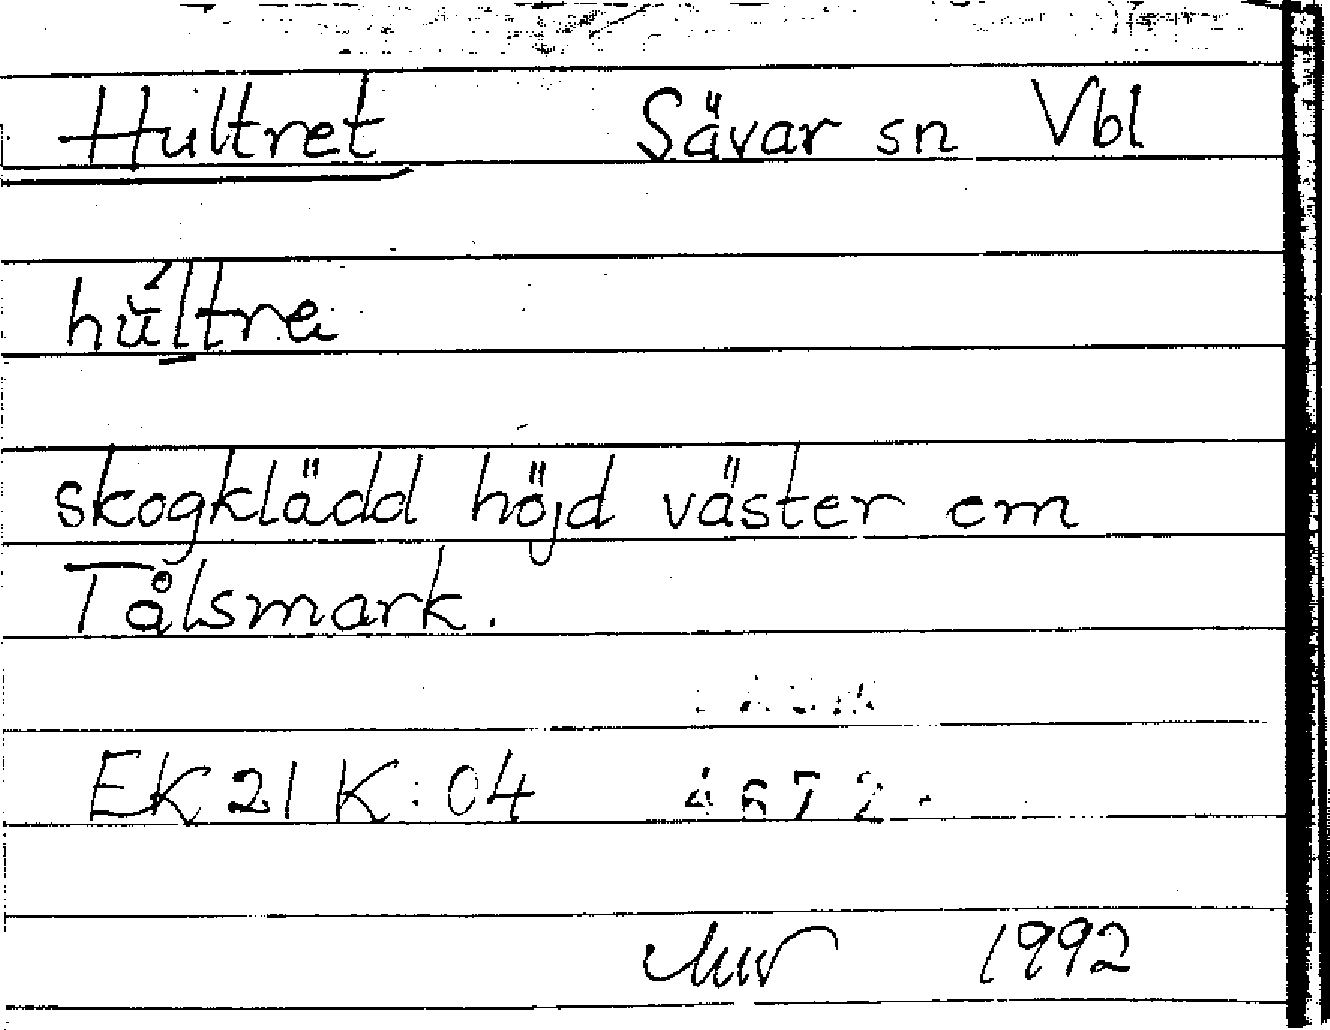 Hultret Sävar sn Vbl
hú̆ltre
skogklädd höjd väster om
Tålsmark.
EK 21 K:04 4672
1992